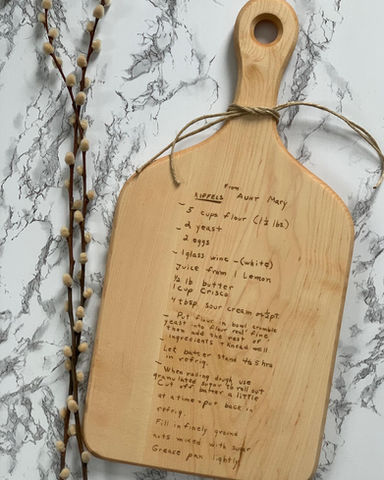 From
KIPFELS Aunt Mary
- 5 cups flour (1½ lbs)
- 2 yeast
2 eggs
- 1 glass wine - (white)
Juice from 1 Lemon
½ lb butter
1 cup Crisco
4 tbsp sour cream or ½ pt.
- Put flour in bowl crumble
yeast into flour real fine
then add the rest of
- ingredients & knead well
Let batter stand 4 to 5 hrs
- in refrig.
- When rolling dough use
granulated sugar to roll out
Cut off batter a little
at a time - put back in
refrig.
Fill in finely ground
nuts mixed with sugar
Grease pan lightly